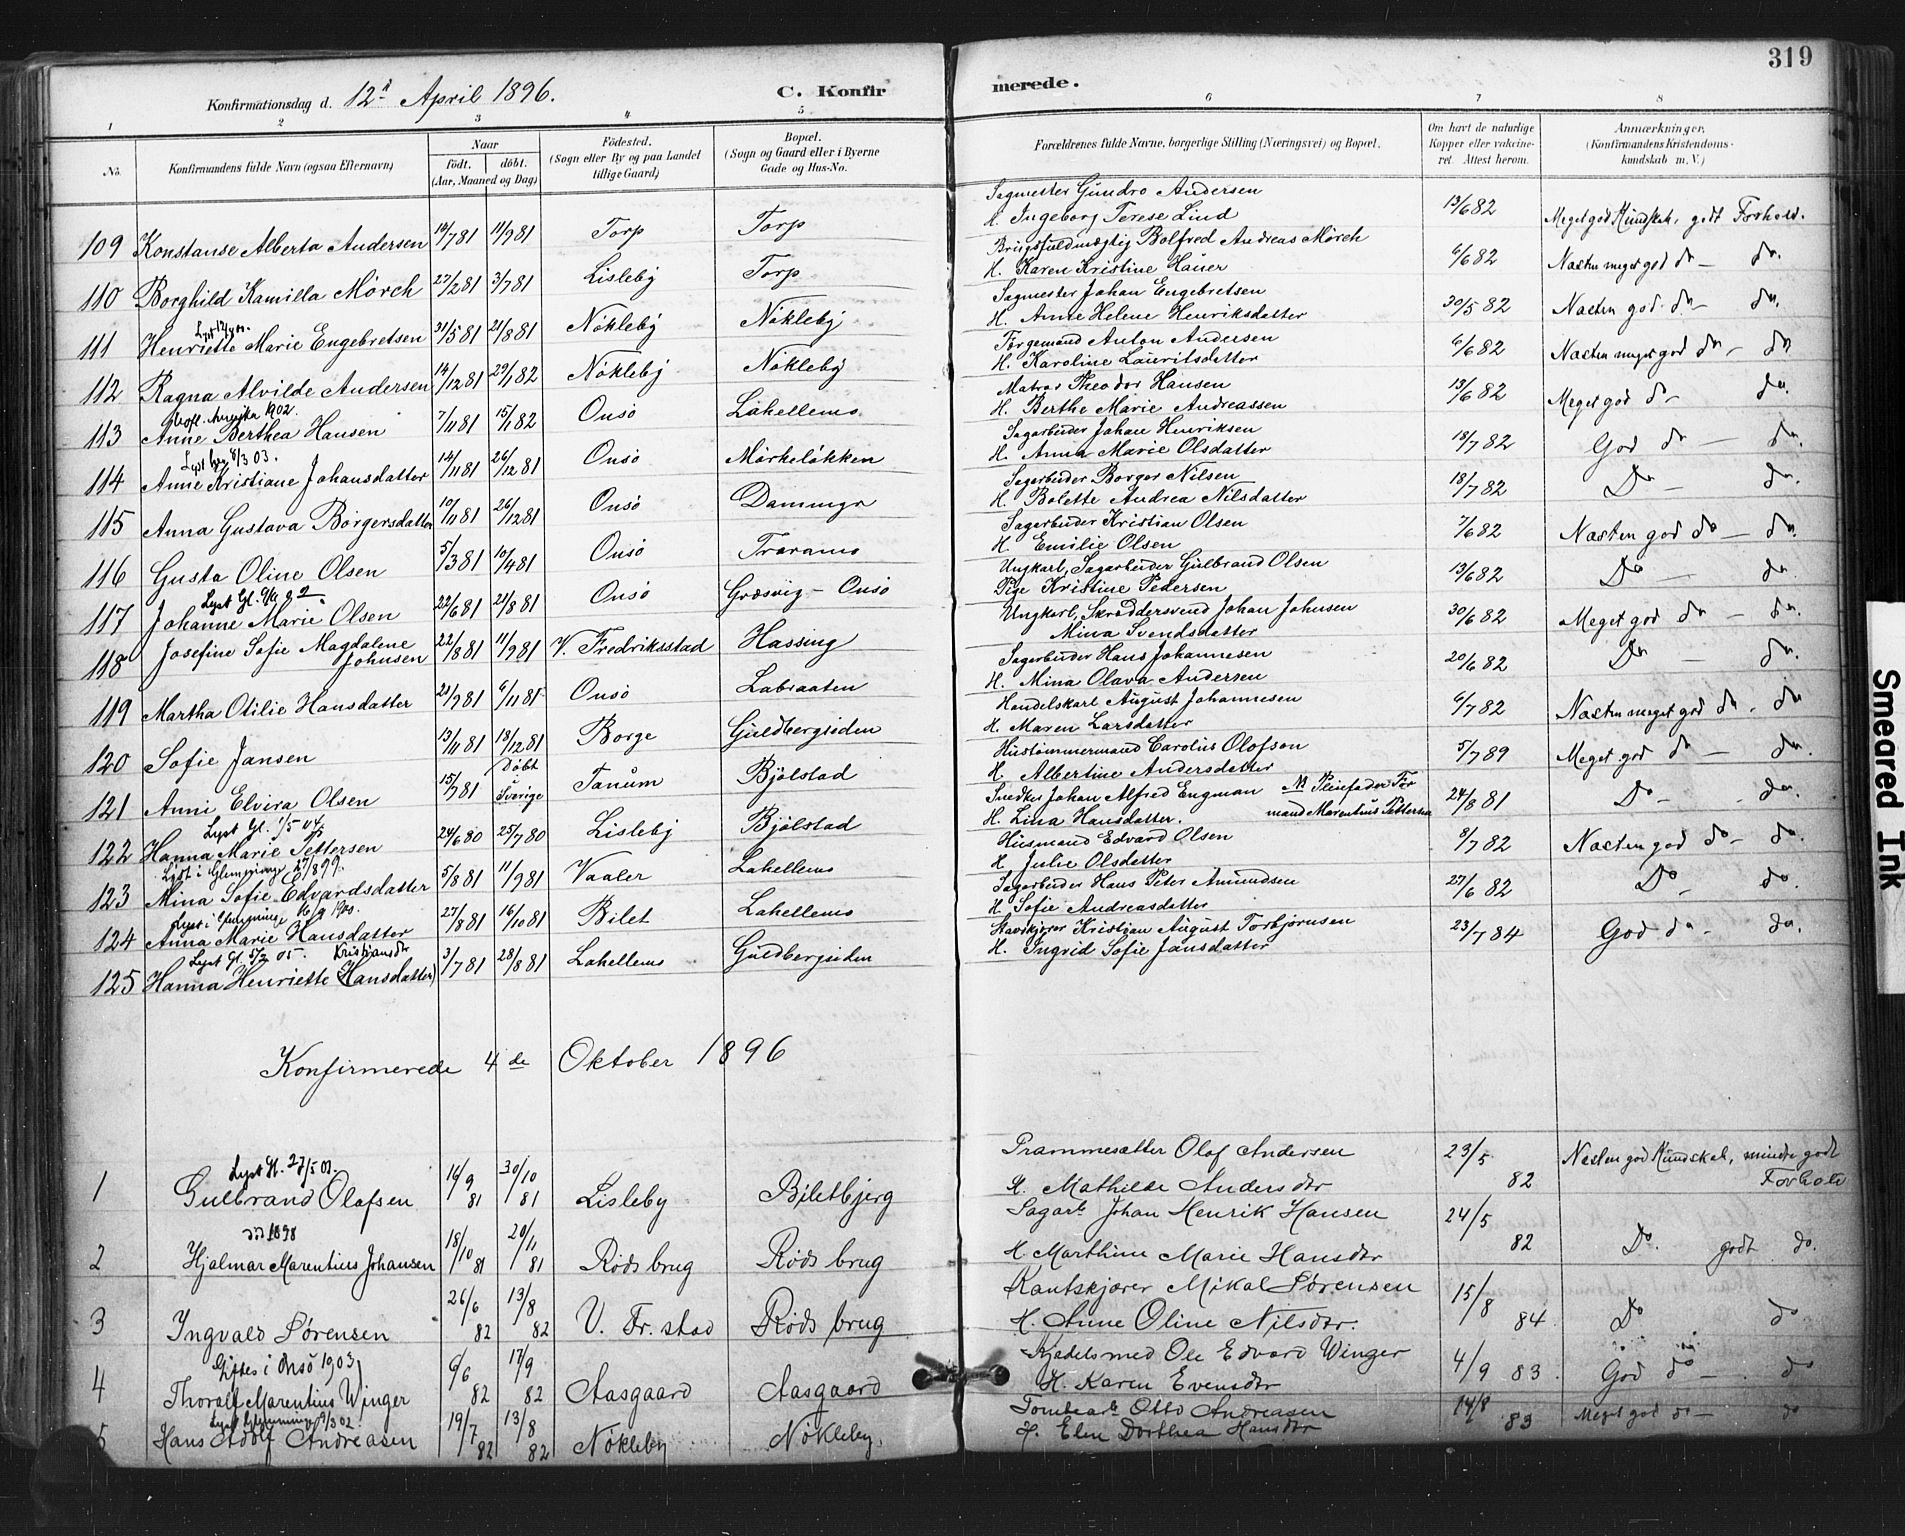 319
Konfirmationsdag d. 12te April 1896. C. Konfirmerede.
1 2 3 4 5 6 7 8
No. Konfirmandens fulde Navn (ogsaa Efternavn) Naar født. døbt. (Aar, Maaned og Dag) Fødested. (Sogn eller By og paa Landet tillige Gaard) Bopæl. (Sogn og Gaard eller i Byerne Gade og Hus-No. Forældrenes fulde Navne, borgerlige Stilling (Næringsvei) og Bopæl. Om havt de naturlige Kopper eller vakcineret. Attest herom. Anmærkninger. (Konfirmandens Kristendomskundskab m. V.)
109 Konstanse Alberta Andersen 14/7 81 11/9 81 Torp Torp Sagmester Gundro Andersen H. Ingeborg Terese Lind 13/6 82 Meget god Kundskab, godt Forhold.
110 Borghild Kamilla Mørch 27/2 81 3/7 81 Lisleby Torp Brugsfuldmægtig Bolfred Andreas Mørch H. Karen Kristine Hauer 6/6 82 Næsten meget god do - do.
111 Henriette Marie Engebretsen 31/5 81 21/8 81 Nökleby Nökleby Sagmester Johan Engebretsen H. Anne Helene Henriksdatter 30/5 82 Næsten god do - do.
112 Ragna Alvilde Andersen 14/12 81 29/1 82 Nökleby Nökleby Formand Anton Andersen H. Karoline Lauritsdatter 6/6 82 Næsten meget god do - do
Uofl. Amerika 1902.
113 Anne Berthea Hansen 7/11 81 15/1 82 Onsö Lahellemo Matros Theodor Hansen H. Berthe Marie Andreassen 13/6 82 Meget god do - do.
Lyst 8/3 03.
114 Anne Kristiane Johansdatter 14/11 81 26/12 81 Onsö Mörkelökken Sagarbeider Johan Henriksen H. Anna Marie Olsdatter 18/7 82 God do - do.
115 Anna Gustava Børgersdatter 10/11 81 26/12 81 Onsö Sagarbeider Borger Nilsen H. Bolette Andrea Nilsdatter 18/7 82 Do - do.
116 Gusta Oline Olsen 5/3 81 10/4 81 Onsö Traramo Sagarbeider Kristian Olsen H. Emilie Olsen 7/6 82 Næsten god do - do.
Lyst Gl.
117 Johanne Marie Olsen 22/6 81 21/8 81 Onsö Græsvig - Onsö Ungkarl, Sagarbeider Gulbrand Olsen Pige Kristine Pedersen 13/6 82 Do - do.
118 Josefine Sofie Magdalene Johnsen 22/8 81 11/9 81 V. Fredriksstad Hassing Ungkarl, Skræddersvend Johan Johnsen Mina Svendsdatter 30/6 82 Meget god do - do.
119 Martha Otilie Hansdatter 23/9 81 6/11 81 Onsö Labraaten Sagarbeider Hans Johannesen H. Mina Olava Andersen 20/6 82 Do - do.
120 Sofie Jansen 13/11 81 18/12 81 Borge Guldbergsiden Handelskarl August Johannesen H. Maren Larsdatter 6/7 82 Næsten meget god do. do
121 Anni Elvira Olsen 15/7 81 døbt Sverige Tanum Bjölstad Hustömmermand Carolus Olofson H. Albertine Andersdatter 5/7 89 Meget god do - do.
Lyst Gl. 1/5 04
122 Hanna Marie Pettersen 24/6 80 25/7 80 Lisleby Bjölstad Snedker Johan Alfred Engman H. Lina Hansdatter. Pleiefader Formand Marentius Pettersen 24/8 81 Do - do.
Lyst i Glemminge 27/8 99.
123 Mina Sofie Edvardsdatter 5/8 81 11/9 81 Vaaler Lahellemo Husmand Edvard Olsen H. Julie Olsdatter 8/7 82 Næsten god do - do.
Lyst i Glemminge 16/9 1900.
124 Anna Marie Hansdatter 27/8 81 16/10 81 Bilet Lahellemo Sagarbeider Hans Peter Amundsen H. Sofie Andreasdatter 27/6 82 Do - do.
Lyst Gl. 5/2 05. Kristiansdr
125 Hanna Henriette (Hansdatter) 3/7 81 28/8 81 Lahellemo Guldbergsiden Kristian August Torbjørnsen H. Ingrid Sofie Jansdatter 23/7 84 God do - do.
Konfirmerede 4de Oktober 1896
Lyst Gl. 27/5 01.
1 Gulbrand Olafsen 16/9 81 30/10 81 Lisleby Biletbjerg Prammesætter Olof Andersen H. Mathilde Andersdtr 23/5 82 Næsten god Kundskab, mindre godt Forhold
död 1898
2 Hjalmar Marentius Johansen 18/10 81 20/11 81 Röds brug Röds brug Sagarb. Johan Henrik Hansen H. Marthine Marie Hansdtr 24/5 82 Do. godt do.
3 Ingvald Sørensen 26/6 82 13/8 82 V. Fr.stad Röds brug Kantskjærer Mikal Sørensen H. Anne Oline Nilsdtr. 15/8 84 Do do
Giftes i Onsö 1903
4 Thoralf Marentius Winger 6/6 82 17/9 82 Aasgaard Aasgaard Kjedelsmed Ole Edvard Winger H. Karen Evensdtr 4/9 83. God do - . do
Lyst Glemminge 9/3 02.
5 Hans Adolf Andreasen 19/7 82 13/8 82 Nökleby Nökleby. Tomtearb. Otto Andreasen H. Elen Dorthea Hansdtr 14/8 83 Meget god do - do
Smeared Ink